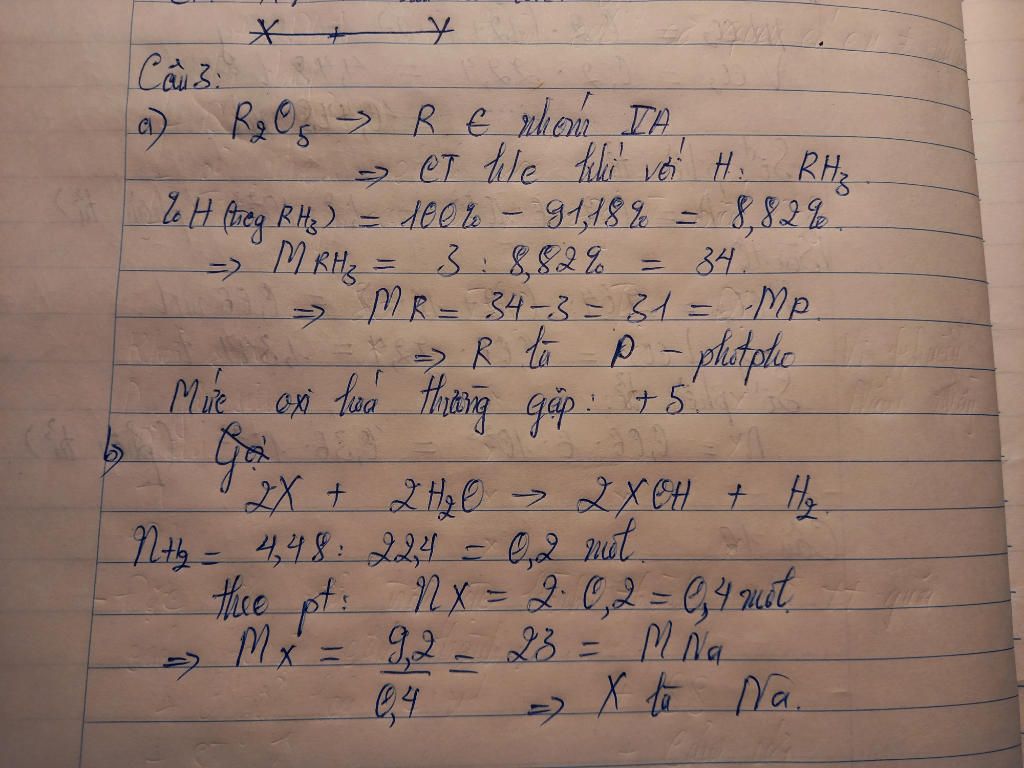 X + Y
Câu 3:
a) R₂O₅ → R ∈ nhóm VA
⇒ CT h/c khí với H: RH₃
%H (trog RH₃) = 100% - 91,18% = 8,82%
⇒ M RH₃ = 3 : 8,82% = 34.
⇒ M R = 34 - 3 = 31 = MP.
⇒ R là P - photpho
Mức oxi hoá thường gặp: +5.
b) Gọi
2X + 2H₂O → 2XOH + H₂
nH₂ = 4,48 : 22,4 = 0,2 mol
theo pt: nX = 2. 0,2 = 0,4 mol.
⇒ Mx = 9,2/0,4 = 23 = M Na
⇒ X là Na.